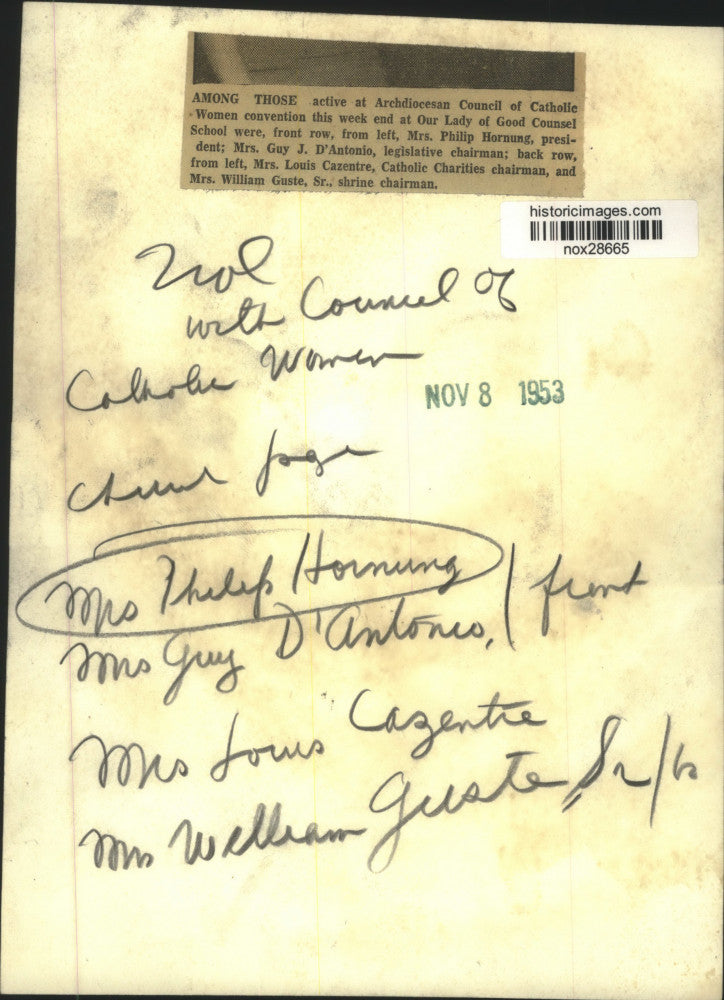 AMONG THOSE active at Archdiocesan Council of Catholic
Women convention this week end at Our Lady of Good Counsel
School were, front row, from left, Mrs. Philip Hornung, presi-
dent; Mrs. Guy J. D'Antonio, legislative chairman; back row,
from left, Mrs. Louis Cazentre, Catholic Charities chairman, and
Mrs. William Guste, Sr., shrine chairman.
historicimages.com
nox28665
with Council of
Catholic Women
NOV 8 1953
page
Mrs Philip Hornung
Mrs Guy D'Antonio, / front
Mrs Louis Cazentre
Mrs William Guste, Sr /